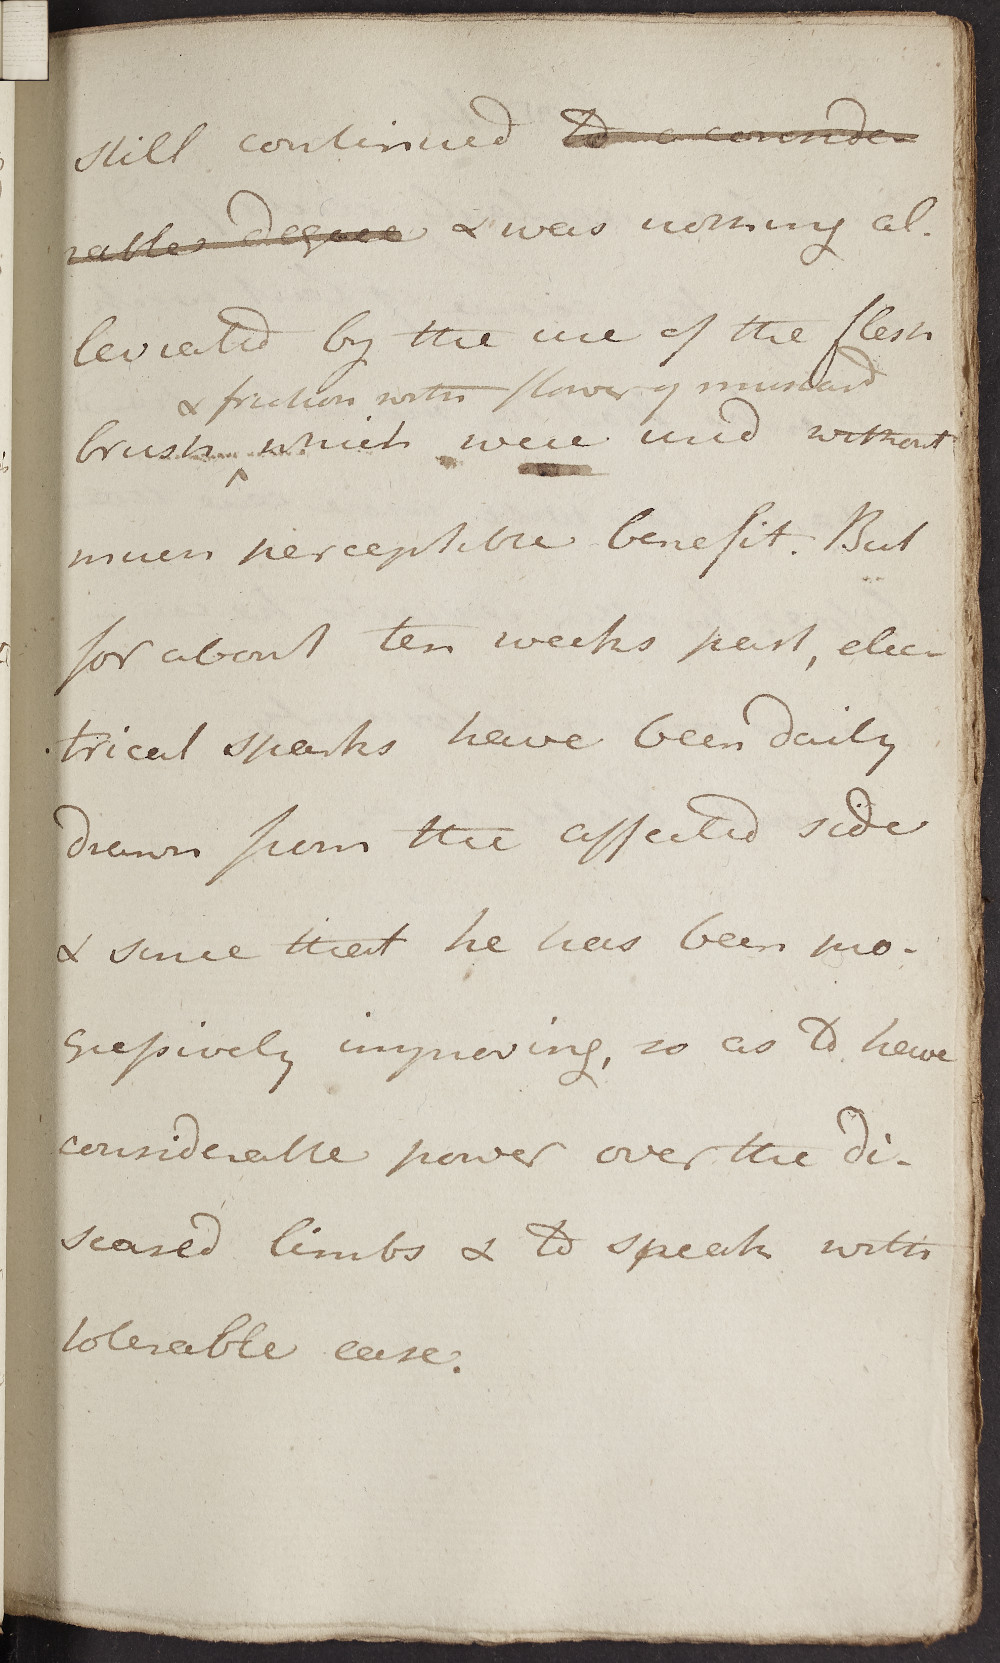 still continued to a conside-
rable degree & was nothing al-
leviated by the use of the flesh
& friction with flower of mustard
brush ^ which were used without
much perceptible benefit. But
for about ten weeks past, elec-
trical sparks have been daily
drawn from the affected side
& since that he has been pro-
gressively improving, so as to have
considerable power over the di-
seased limbs & to speak with
tolerable ease.